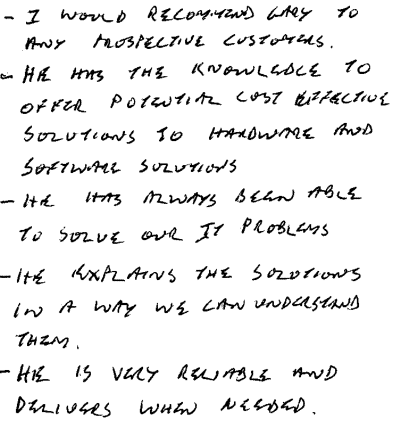 - I WOULD RECOMMEND GARY TO
ANY PROSPECTIVE CUSTOMERS.
- HE HAS THE KNOWLEDGE TO
OFFER POTENTIAL COST EFFECTIVE
SOLUTIONS TO HARDWARE AND
SOFTWARE SOLUTIONS
- HE HAS ALWAYS BEEN ABLE
TO SOLVE OUR IT PROBLEMS
- HE EXPLAINS THE SOLUTIONS
IN A WAY WE CAN UNDERSTAND
THEM.
- HE IS VERY RELIABLE AND
DELIVERS WHEN NEEDED.